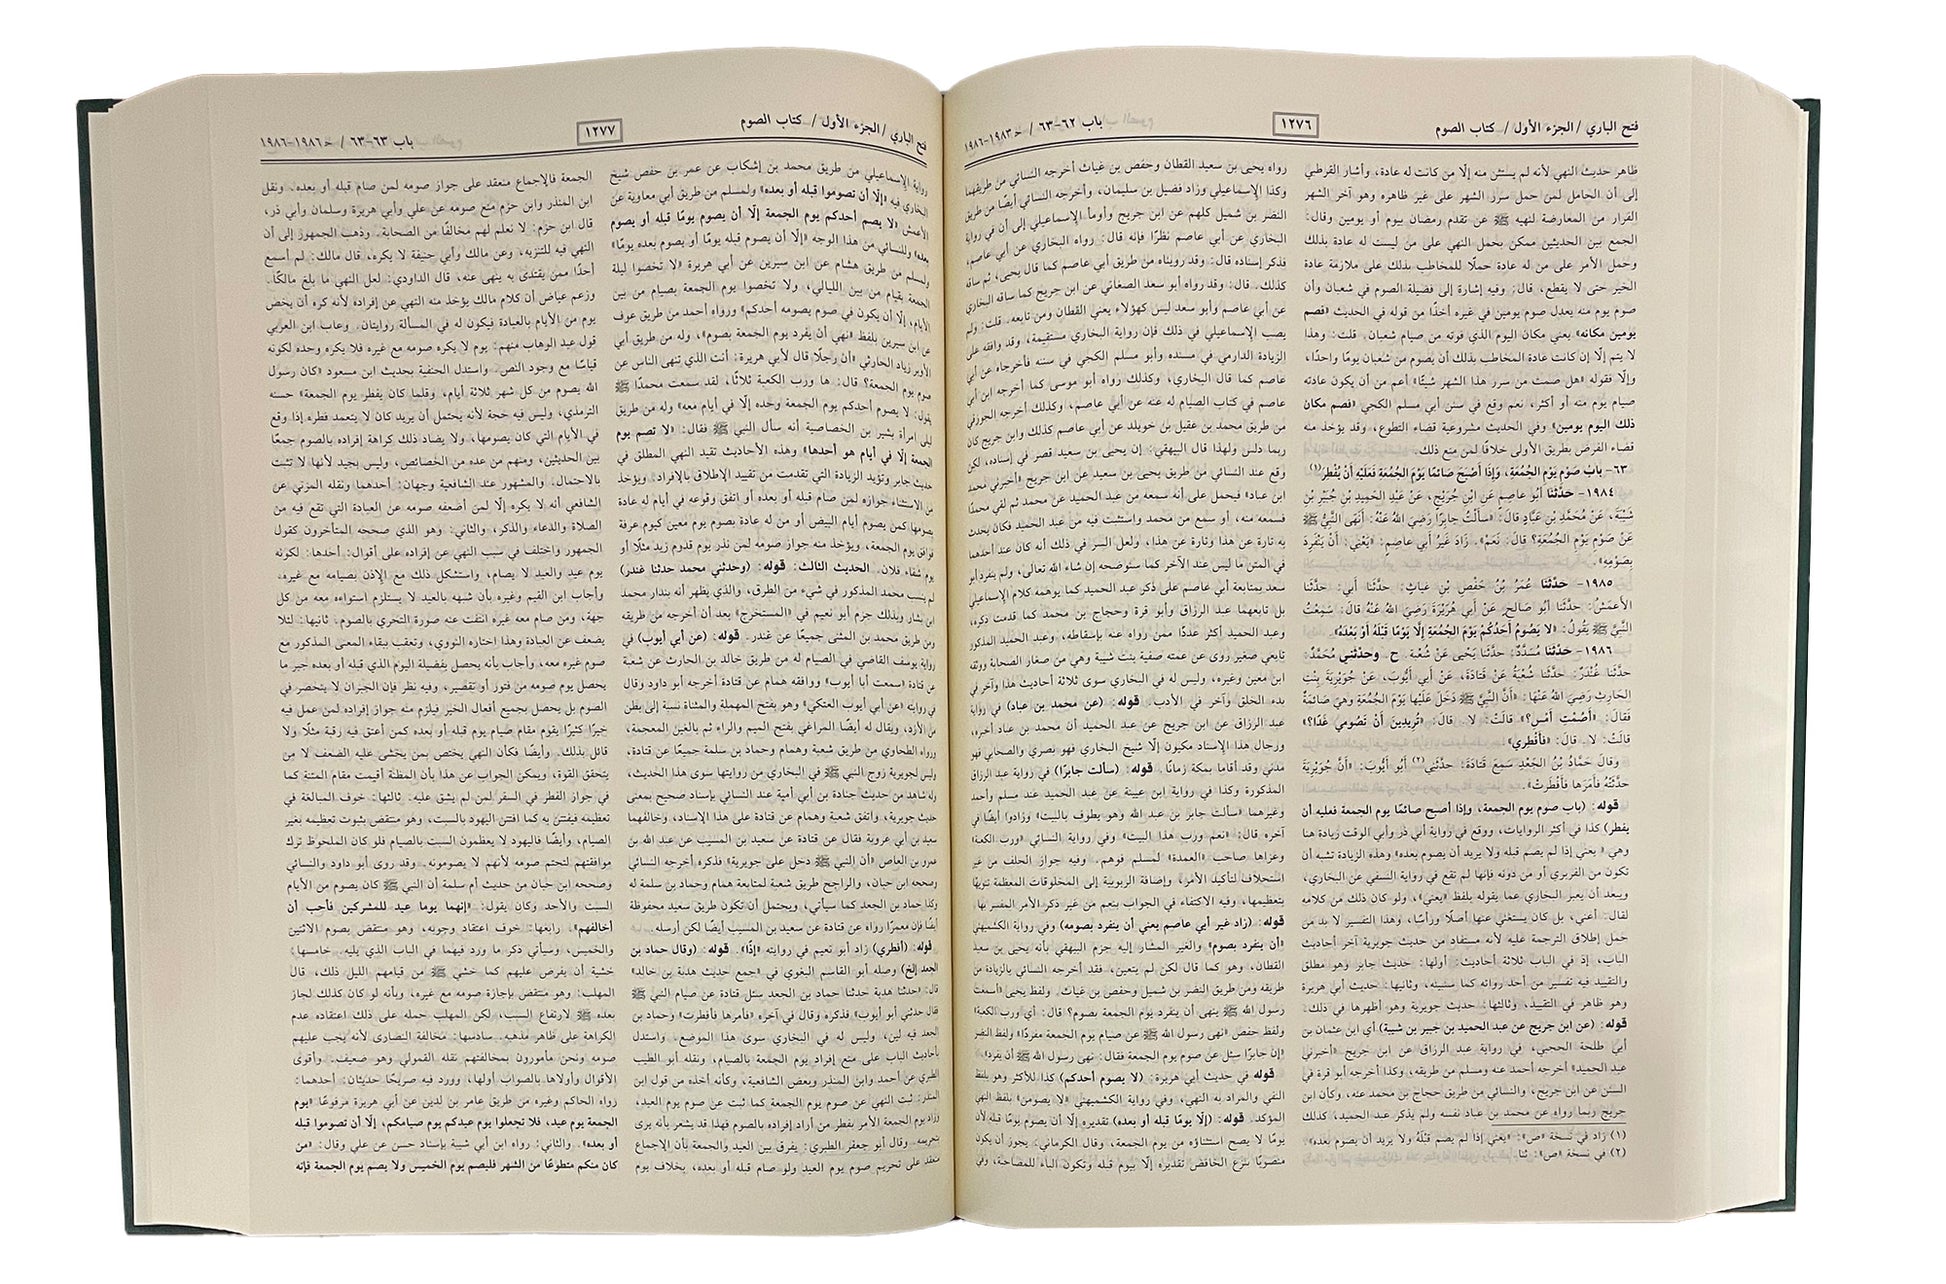 فتح الباري / الجزء الأول / كتاب الصوم
١٢٧٦
باب ٦٢-٦٣ / ح ١٩٨٣-١٩٨٦
ظاهر حديث النهي لأنه لم يستثن منه إلّا من كانت له عادة، وأشار القرطبي
إلى أن الحامل لمن حمل سرر الشهر على غير ظاهره وهو آخر الشهر
الفرار من المعارضة لنهيه ﷺ عن تقدم رمضان بيوم أو يومين وقال:
الجمع بين الحديثين ممكن بحمل النهي على من ليست له عادة بذلك
وحمل الأمر على من له عادة حملًا للمخاطب بذلك على ملازمة عادة
الخير حتى لا يقطع، قال: وفيه إشارة إلى فضيلة الصوم في شعبان وأن
صوم يوم منه يعدل صوم يومين في غيره أخذًا من قوله في الحديث «فصم
يومين مكانه» يعني مكان اليوم الذي فوته من صيام شعبان. قلت: وهذا
لا يتم إلّا إن كانت عادة المخاطب بذلك أن يصوم من شعبان يومًا واحدًا،
وإلا فقوله «هل صمت من سرر هذا الشهر شيئًا» أعم من أن يكون عادته
صيام يوم منه أو أكثر، نعم وقع في سنن أبي مسلم الكجي «فصم مكان
ذلك اليوم يومين» وفي الحديث مشروعية قضاء التطوع، وقد يؤخذ منه
قضاء الفرض بطريق الأولى خلافًا لمن منع ذلك.
٦٣- باب صَوْمِ يَوْمِ الجُمُعَةِ، وَإِذَا أَصْبَحَ صَائمًا يَوْمَ الجُمُعَةِ فَعَلَيْهِ أَنْ يُفْطِرَ(١)
١٩٨٤- حَدَّثَنَا أَبُو عَاصِمٍ عَنِ ابْنِ جُرَيْجٍ، عَنْ عَبْدِ الحَمِيدِ بْنِ جُبَيْرِ بْنِ
شَيْبَةَ، عَنْ مُحَمَّدِ بْنِ عَبَّادٍ قَالَ: «سَأَلْتُ جابِرًا رَضِيَ اللهُ عَنْهُ: أَنَهَى النَّبِيُّ ﷺ
عَنْ صَوْمِ يَوْمِ الجُمُعَةِ؟ قَالَ: نَعَمْ». زَادَ غَيْرُ أَبِي عاصِمٍ: «يَعْنِي: أَنْ يَنْفَرِدَ
بِصَوْمِهِ».
١٩٨٥- حَدَّثَنَا عُمَرُ بْنُ حَفْصِ بْنِ غِيَاثٍ: حَدَّثَنَا أَبِي: حَدَّثَنَا
الأَعْمَشُ: حَدَّثَنَا أَبُو صَالِحٍ، عَنْ أَبِي هُرَيْرَةَ رَضِيَ اللهُ عَنْهُ قَالَ: سَمِعْتُ
النَّبِيَّ ﷺ يَقُولُ: «لا يَصُومُ أَحَدُكُمْ يَوْمَ الجُمُعَةِ إِلَّا يَوْمًا قَبْلَهُ أَوْ بَعْدَهُ».
١٩٨٦- حَدَّثَنَا مُسَدَّدٌ: حَدَّثَنَا يَحْيَى عَنْ شُعْبَةَ. ح وحَدَّثَنِي مُحَمَّدٌ:
حَدَّثَنَا غُنْدَرٌ: حَدَّثَنَا شُعْبَةُ عَنْ قَتَادَةَ، عَنْ أَبِي أَيُّوبَ، عَنْ جُوَيْرِيَةَ بِنْتِ
الحَارِثِ رَضِيَ اللهُ عَنْهَا: «أَنَّ النَّبِيَّ ﷺ دَخَلَ عَلَيْهَا يَوْمَ الجُمُعَةِ وَهِيَ صَائمَةٌ
فَقَالَ: «أَصُمْتِ أَمْسِ؟» قالَتْ: لا. قَالَ: «تُرِيدِينَ أَنْ تَصُومِي غَدًا؟»
قَالَتْ: لا. قَالَ: «فأفْطِرِي».
وقالَ حَمَّادُ بْنُ الجَعْدِ سَمِعَ قَتَادَةَ: حَدَّثَنِي(٢) أَبُو أَيُّوبَ: «أَنَّ جُوَيْرِيَةَ
حَدَّثَتْهُ فَأَمَرَهَا فَأَفْطَرَتْ».
قوله: (باب صوم يوم الجمعة، وإذا أصبح صائمًا يوم الجمعة فعليه أن
يفطر) كذا في أكثر الروايات، ووقع في رواية أبي ذر وأبي الوقت زيادة هنا
وهي «يعني إذا لم يصم قبله ولا يريد أن يصوم بعده» وهذه الزيادة تشبه أن
تكون من الفربري أو من دونه فإنها لم تقع في رواية النسفي عن البخاري،
ويبعد أن يعبر البخاري عما يقوله بلفظ «يعني»، ولو كان ذلك من كلامه
لقال: أعني، بل كان يستغني عنها أصلًا ورأسًا، وهذا التفسير لا بد من
حمل إطلاق الترجمة عليه لأنه مستفاد من حديث جويرية آخر أحاديث
الباب، إذ في الباب ثلاثة أحاديث: أولها: حديث جابر وهو مطلق
والتقييد فيه تفسير من أحد رواته كما سنبينه، وثانيها: حديث أبي هريرة
وهو ظاهر في التقييد، وثالثها: حديث جويرية وهو أظهرها في ذلك.
قوله: (عن ابن جريج عن عبد الحميد بن جبير بن شيبة) أي ابن عثمان بن
أبي طلحة الحجبي، في رواية عبد الرزاق عن ابن جريج «أخبرني
عبد الحميد» أخرجه أحمد عنه ومسلم من طريقه، وكذا أخرجه أبو قرة في
السنن عن ابن جريج، والنسائي من طريق حجاج بن محمد عنه، وكأن ابن
جريج ربما رواه عن محمد بن عباد نفسه ولم يذكر عبد الحميد، كذلك
(١) زاد في نسخة «ص»: «يعني إذا لم يصم قبْلَهُ ولا يريد أن يصوم بعده».
(٢) في نسخة «ص»: ثنا.
رواه يحيى بن سعيد القطان وحفص بن غياث أخرجه النسائي من طريقهما
وكذا الإسماعيلي وزاد فضيل بن سليمان، وأخرجه النسائي أيضًا من طريق
النضر بن شميل كلهم عن ابن جريج وأومأ الإسماعيلي إلى أن في رواية
البخاري عن أبي عاصم نظرًا فإنه قال: رواه البخاري عن أبي عاصم،
فذكر إسناده قال: وقد رويناه من طريق أبي عاصم كما قال يحيى، ثم ساقه
كذلك. قال: وقد رواه أبو سعد الصغاني عن ابن جريج كما ساقه البخاري
عن أبي عاصم وأبو سعد ليس كهؤلاء يعني القطان ومن تابعه. قلت: ولم
يصب الإسماعيلي في ذلك فإن رواية البخاري مستقيمة، وقد وافقه على
الزيادة الدارمي في مسنده وأبو مسلم الكجي في سننه فأخرجاه عن أبي
عاصم كما قال البخاري، وكذلك رواه أبو موسى كما أخرجه ابن أبي
عاصم في كتاب الصيام له عنه عن أبي عاصم، وكذلك أخرجه الجوزقي
من طريق محمد بن عقيل بن خويلد عن أبي عاصم كذلك وابن جريج كان
ربما دلس ولهذا قال البيهقي: إن يحيى بن سعيد قصر في إسناده، لكن
وقع عند النسائي من طريق يحيى بن سعيد عن ابن جريج «أخبرني محمد
ابن عباد» فيحمل على أنه سمعه من عبد الحميد عن محمد ثم لقي محمدًا
فسمعه منه، أو سمع من محمد واستثبت فيه من عبد الحميد فكان يحدث
به تارة عن هذا وتارة عن هذا، ولعل السر في ذلك أنه كان عند أحدهما
في المتن ما ليس عند الآخر كما سنوضحه إن شاء الله تعالى، ولم ينفرد أبو
سعد بمتابعة أبي عاصم على ذكر عبد الحميد كما يوهمه كلام الإسماعيلي
بل تابعهما عبد الرزاق وأبو قرة وحجاج بن محمد كما قدمت ذكره،
وعبد الحميد أكثر عددًا ممن رواه عنه بإسقاطه، وعبد الحميد المذكور
تابعي صغير روى عن عمته صفية بنت شيبة وهي من صغار الصحابة ووثقه
ابن معين وغيره، وليس له في البخاري سوى ثلاثة أحاديث هذا وآخر في
بدء الخلق وآخر في الأدب. قوله: (عن محمد بن عباد) في رواية
عبد الرزاق عن ابن جريج عن عبد الحميد أن محمد بن عباد أخبره،
ورجال هذا الإسناد مكيون إلّا شيخ البخاري فهو بصري والصحابي فهو
مدني وقد أقاما بمكة زمانًا. قوله: (سألت جابرًا) في رواية عبد الرزاق
المذكورة وكذا في رواية ابن عيينة عن عبد الحميد عند مسلم وأحمد
وغيرهما «سألت جابر بن عبد الله وهو يطوف بالبيت» وزادوا أيضًا في
آخره قال: «نعم ورب هذا البيت» وفي رواية النسائي «ورب الكعبة»
وعزاها صاحب «العمدة» لمسلم فوهم. وفيه جواز الحلف من غير
استحلاف لتأكيد الأمر، وإضافة الربوبية إلى المخلوقات المعظمة تنويهًا
بتعظيمها، وفيه الاكتفاء في الجواب بنعم من غير ذكر الأمر المفسر بها.
قوله: (زاد غير أبي عاصم يعني أن ينفرد بصومه) وفي رواية الكشميهني
«أن ينفرد بصوم» والغير المشار إليه جزم البيهقي بأنه يحيى بن سعيد
القطان، وهو كما قال لكن لم يتعين، فقد أخرجه النسائي بالزيادة من
طريقه ومن طريق النضر بن شميل وحفص بن غياث. ولفظ يحيى «أسمعت
رسول الله ﷺ ينهى أن ينفرد يوم الجمعة بصوم؟ قال: أي ورب الكعبة»
ولفظ حفص «نهى رسول الله ﷺ عن صيام يوم الجمعة مفردًا» ولفظ النضر
«إن جابرًا سئل عن صوم يوم الجمعة فقال: نهى رسول الله ﷺ أن يفرد».
قوله في حديث أبي هريرة: (لا يصوم أحدكم) كذا للأكثر وهو بلفظ
النفي والمراد به النهي، وفي رواية الكشميهني «لا يصومن» بلفظ النهي
المؤكد. قوله: (إلّا يومًا قبله أو بعده) تقديره إلّا أن يصوم يومًا قبله لأن
يومًا لا يصح استثناؤه من يوم الجمعة، وقال الكرماني: يجوز أن يكون
منصوبًا بنزع الخافض تقديره إلّا بيوم قبله وتكون الباء للمصاحبة، وفي
فتح الباري / الجزء الأول / كتاب الصوم
١٢٧٧
باب ٦٣-٦٣ / ح ١٩٨٦-١٩٨٦
رواية الإسماعيلي من طريق محمد بن إشكاب عن عمر بن حفص شيخ
البخاري فيه «إلّا أن تصوموا قبله أو بعده» ولمسلم من طريق أبي معاوية عن
الأعمش «لا يصم أحدكم يوم الجمعة إلّا أن يصوم يومًا قبله أو يصوم
بعده» وللنسائي من هذا الوجه «إلّا أن يصوم قبله يومًا أو يصوم بعده يومًا»
ولمسلم من طريق هشام عن ابن سيرين عن أبي هريرة «لا تخصوا ليلة
الجمعة بقيام من بين الليالي، ولا تخصوا يوم الجمعة بصيام من بين
الأيام، إلّا أن يكون في صوم يصومه أحدكم» ورواه أحمد من طريق عوف
عن ابن سيرين بلفظ «نهى أن يفرد يوم الجمعة بصوم»، وله من طريق أبي
الأوبر زياد الحارثي «أن رجلًا قال لأبي هريرة: أنت الذي تنهى الناس عن
صوم يوم الجمعة؟ قال: ها ورب الكعبة ثلاثًا، لقد سمعت محمدًا ﷺ
يقول: لا يصوم أحدكم يوم الجمعة وحده إلّا في أيام معه» وله من طريق
ليلى امرأة بشير بن الخصاصية أنه سأل النبي ﷺ فقال: «لا تصم يوم
الجمعة إلّا في أيام هو أحدها» وهذه الأحاديث تقيد النهي المطلق في
حديث جابر وتؤيد الزيادة التي تقدمت من تقييد الإطلاق بالإفراد. ويؤخذ
من الاستثناء جوازه لمن صام قبله أو بعده أو اتفق وقوعه في أيام له عادة
بصومها كمن يصوم أيام البيض أو من له عادة بصوم يوم معين كيوم عرفة
فوافق يوم الجمعة، ويؤخذ منه جواز صومه لمن نذر يوم قدوم زيد مثلًا أو
يوم شفاء فلان. الحديث الثالث: قوله: (وحدثني محمد حدثنا غندر)
لم ينسب محمد المذكور في شيء من الطرق، والذي يظهر أنه بندار محمد
ابن بشار وبذلك جزم أبو نعيم في «المستخرج» بعد أن أخرجه من طريقه
ومن طريق محمد بن المثنى جميعًا عن غندر. قوله: (عن أبي أيوب) في
رواية يوسف القاضي في الصيام له من طريق خالد بن الحارث عن شعبة
عن قتادة «سمعت أبا أيوب» ووافقه همام عن قتادة أخرجه أبو داود وقال
في روايته «عن أبي أيوب العتكي» وهو بفتح المهملة والمثناة نسبة إلى بطن
من الأزد، ويقال له أيضًا المراغي بفتح الميم والراء ثم بالغين المعجمة،
ورواه الطحاوي من طريق شعبة وهمام وحماد بن سلمة جميعًا عن قتادة،
وليس لجويرية زوج النبي ﷺ في البخاري من روايتها سوى هذا الحديث،
وله شاهد من حديث جنادة بن أبي أمية عند النسائي بإسناد صحيح بمعنى
حديث جويرية، واتفق شعبة وهمام عن قتادة على هذا الإسناد، وخالفهما
سعيد بن أبي عروبة فقال عن قتادة عن سعيد بن المسيب عن عبد الله بن
عمرو بن العاص «أن النبي ﷺ دخل على جويرية» فذكره أخرجه النسائي
وصححه ابن حبان، والراجح طريق شعبة لمتابعة همام وحماد بن سلمة له
وكذا حماد بن الجعد كما سيأتي، ويحتمل أن تكون طريق سعيد محفوظة
أيضًا فإن معمرًا رواه عن قتادة عن سعيد بن المسيب أيضًا لكن أرسله.
قوله: (أفطري) زاد أبو نعيم في روايته «إذًا». قوله: (وقال حماد بن
الجعد إلخ) وصله أبو القاسم البغوي في «جمع حديث هدبة بن خالد»
قال: «حدثنا هدبة حدثنا حماد بن الجعد سئل قتادة عن صيام النبي ﷺ
فقال حدثني أبو أيوب» فذكره وقال في آخره «فأمرها فأفطرت» وحماد بن
الجعد فيه لين، وليس له في البخاري سوى هذا الموضع. واستدل
بأحاديث الباب على منع إفراد يوم الجمعة بالصيام، ونقله أبو الطيب
الطبري عن أحمد وابن المنذر وبعض الشافعية، وكأنه أخذه من قول ابن
المنذر: ثبت النهي عن صوم يوم الجمعة كما ثبت عن صوم يوم العيد،
وزاد يوم الجمعة الأمر بفطر من أراد إفراده بالصوم فهذا قد يشعر بأنه يرى
بتحريمه. وقال أبو جعفر الطبري: يفرق بين العيد والجمعة بأن الإجماع
منعقد على تحريم صوم يوم العيد ولو صام قبله أو بعده، بخلاف يوم
الجمعة فالإجماع منعقد على جواز صومه لمن صام قبله أو بعده. ونقل
ابن المنذر وابن حزم منع صومه عن علي وأبي هريرة وسلمان وأبي ذر،
قال ابن حزم: لا نعلم لهم مخالفًا من الصحابة. وذهب الجمهور إلى أن
النهي فيه للتنزيه، وعن مالك وأبي حنيفة لا يكره، قال مالك: لم أسمع
أحدًا ممن يقتدى به ينهى عنه، قال الداودي: لعل النهي ما بلغ مالكًا.
وزعم عياض أن كلام مالك يؤخذ منه النهي عن إفراده لأنه كره أن يخص
يوم من الأيام بالعبادة فيكون له في المسألة روايتان. وعاب ابن العربي
قول عبد الوهاب منهم: يوم لا يكره صومه مع غيره فلا يكره وحده لكونه
قياسًا مع وجود النص. واستدل الحنفية بحديث ابن مسعود «كان رسول
الله يصوم من كل شهر ثلاثة أيام، وقلما كان يفطر يوم الجمعة» حسنه
الترمذي، وليس فيه حجة لأنه يحتمل أن يريد كان لا يتعمد فطره إذا وقع
في الأيام التي كان يصومها، ولا يضاد ذلك كراهة إفراده بالصوم جمعًا
بين الحديثين، ومنهم من عده من الخصائص، وليس بجيد لأنها لا تثبت
بالاحتمال. والمشهور عند الشافعية وجهان: أحدهما ونقله المزني عن
الشافعي أنه لا يكره إلّا لمن أضعفه صومه عن العبادة التي تقع فيه من
الصلاة والدعاء والذكر، والثاني: وهو الذي صححه المتأخرون كقول
الجمهور واختلف في سبب النهي عن إفراده على أقوال: أحدها: لكونه
يوم عيد والعيد لا يصام، واستشكل ذلك مع الإذن بصيامه مع غيره.
وأجاب ابن القيم وغيره بأن شبهه بالعيد لا يستلزم استواءه معه من كل
جهة، ومن صام معه غيره انتفت عنه صورة التحري بالصوم. ثانيها: لئلا
يضعف عن العبادة وهذا اختاره النووي، وتعقب ببقاء المعنى المذكور مع
صوم غيره معه، وأجاب بأنه يحصل بفضيلة اليوم الذي قبله أو بعده جبر ما
يحصل يوم صومه من فتور أو تقصير، وفيه نظر فإن الجبران لا ينحصر في
الصوم بل يحصل بجميع أفعال الخير فيلزم منه جواز إفراده لمن عمل فيه
خيرًا كثيرًا يقوم مقام صيام يوم قبله أو بعده كمن أعتق فيه رقبة مثلًا ولا
قائل بذلك. وأيضًا فكأن النهي يختص بمن يخشى عليه الضعف لا من
يتحقق القوة، ويمكن الجواب عن هذا بأن المظنة أقيمت مقام المئنة كما
في جواز الفطر في السفر لمن لم يشق عليه. ثالثها: خوف المبالغة في
تعظيمه فيفتتن به كما افتتن اليهود بالسبت، وهو منتقض بثبوت تعظيمه بغير
الصيام، وأيضًا فاليهود لا يعظمون السبت بالصيام فلو كان الملحوظ ترك
موافقتهم لتحتم صومه لأنهم لا يصومونه. وقد روى أبو داود والنسائي
وصححه ابن حبان من حديث أم سلمة أن النبي ﷺ كان يصوم من الأيام
السبت والأحد وكان يقول: «إنهما يوما عيد للمشركين فأحب أن
أخالفهم». رابعها: خوف اعتقاد وجوبه، وهو منتقض بصوم الاثنين
والخميس، وسيأتي ذكر ما ورد فيهما في الباب الذي يليه. خامسها:
خشية أن يفرض عليهم كما خشي ﷺ من قيامهم الليل ذلك، قال
المهلب: وهو منتقض بإجازة صومه مع غيره، وبأنه لو كان كذلك لجاز
بعده ﷺ لارتفاع السبب، لكن المهلب حمله على ذلك اعتقاده عدم
الكراهة على ظاهر مذهبه. سادسها: مخالفة النصارى لأنه يجب عليهم
صومه ونحن مأمورون بمخالفتهم نقله القمولي وهو ضعيف. وأقوى
الأقوال وأولاها بالصواب أولها، وورد فيه صريحًا حديثان: أحدهما:
رواه الحاكم وغيره من طريق عامر بن لدين عن أبي هريرة مرفوعًا: «يوم
الجمعة يوم عيد، فلا تجعلوا يوم عيدكم يوم صيامكم، إلا أن تصوموا قبله
أو بعده». والثاني: رواه ابن أبي شيبة بإسناد حسن عن علي وقال: «من
كان منكم متطوعًا من الشهر فليصم يوم الخميس ولا يصم يوم الجمعة فإنه